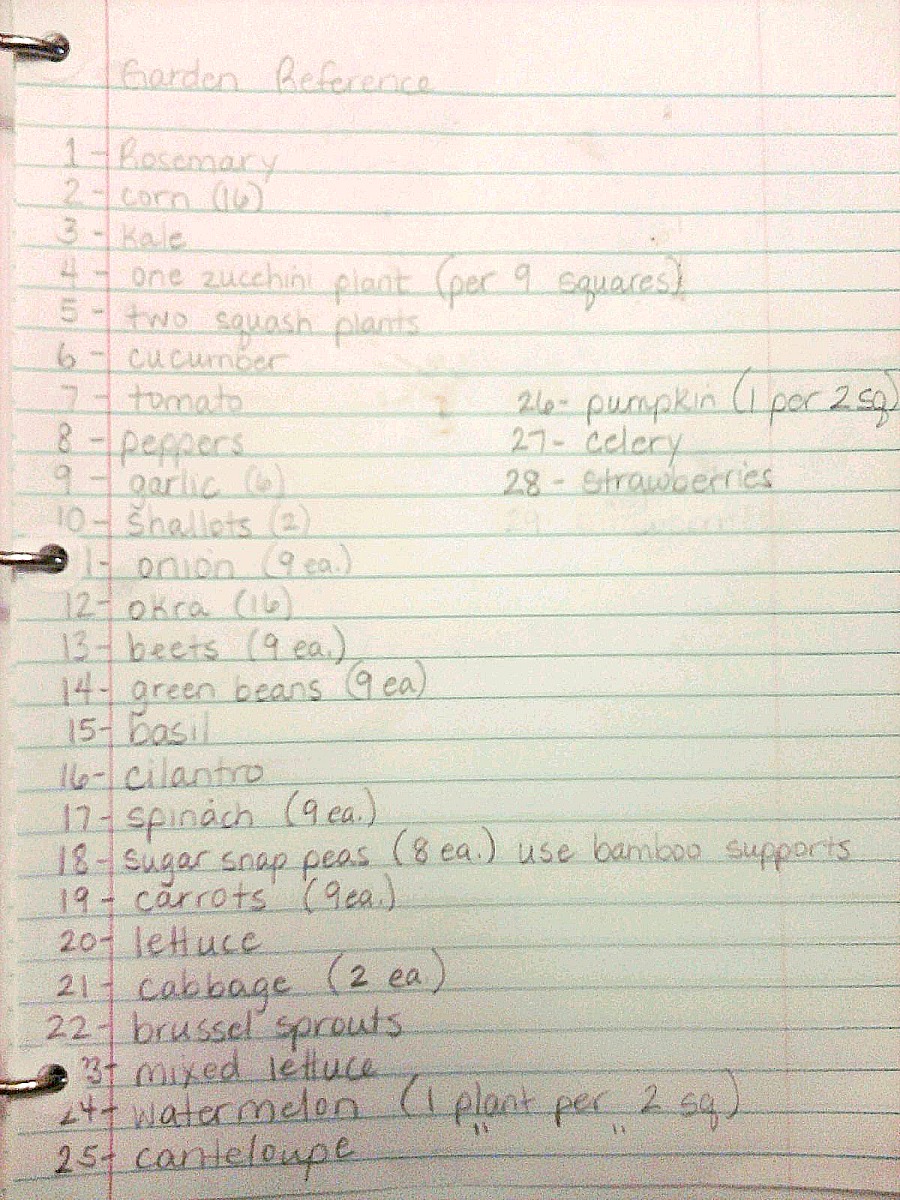 Garden Reference
1 - Rosemary
2 - corn (16)
3 - Kale
4 - one zucchini plant (per 9 squares)
5 - two squash plants
6 - cucumber
7 - tomato
8 - peppers
9 - garlic (6)
10 - Shallots (2)
11 - onion (9 ea.)
12 - okra (16)
13 - beets (9 ea.)
14 - green beans (9 ea)
15 - basil
16 - cilantro
17 - spinach (9 ea.)
18 - sugar snap peas (8 ea.) use bamboo supports
19 - carrots (9 ea.)
20 - lettuce
21 - cabbage (2 ea.)
22 - brussel sprouts
23 - mixed lettuce
24 - watermelon (1 plant per 2 sq.)
25 - canteloupe " "
26 - pumpkin (1 per 2 sq)
27 - celery
28 - strawberries
29